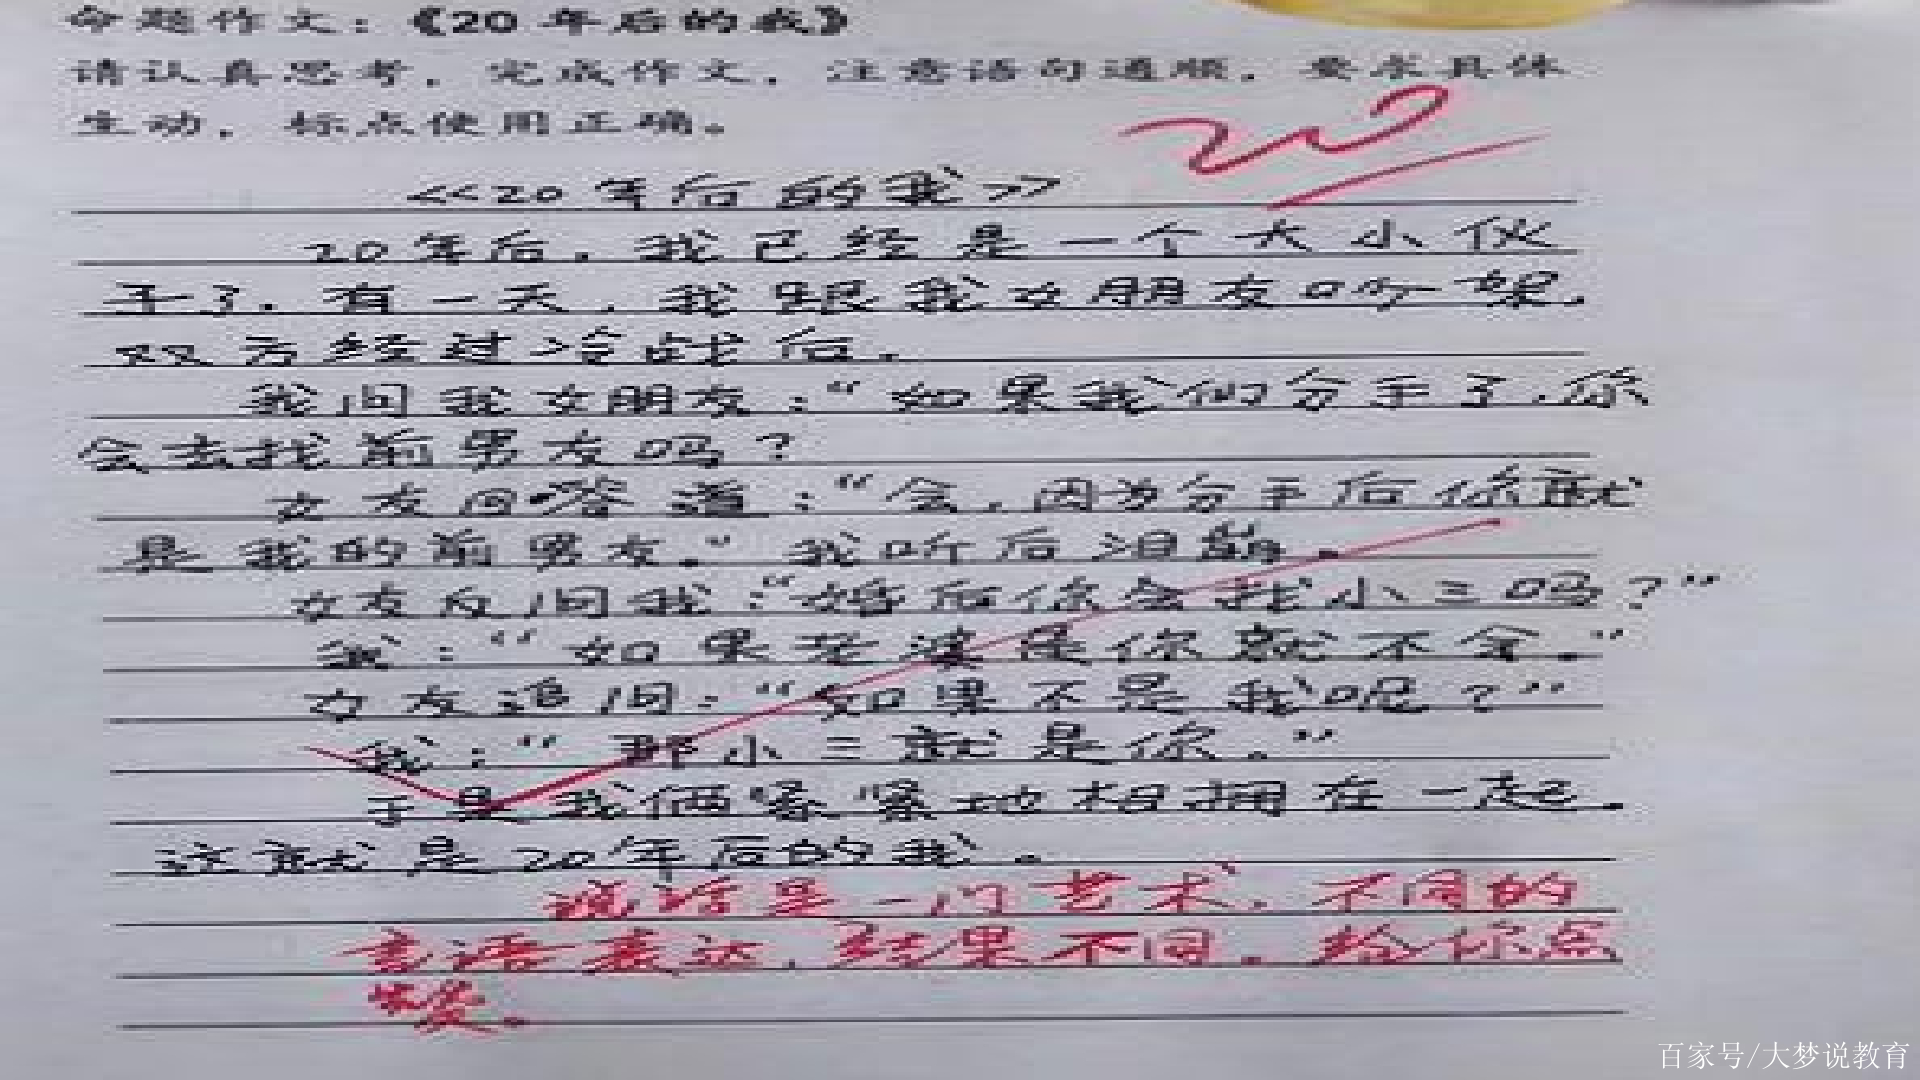 命题作文：《20 年后的我》
请认真思考，完成作文，注意语句通顺，要求具体
生动，标点使用正确。
20
《20年后的我》
20年后，我已经是一个大小伙
子了，有一天，我跟我女朋友吵架，
双方经过冷战后，
我问我女朋友：“如果我们分手了，你
会去找前男友吗？
女友回答道：“会，因为分手后你就
是我的前男友。”我听后泪奔。
女友反问我：“婚后你会找小三吗？”
我：“如果老婆是你就不会。”
女友追问：“如果不是我呢？”
我：“那小三就是你。”
于是我俩紧紧地相拥在一起。
这就是20年后的我。
说话是一门艺术，不同的
言语表达，结果不同。给你点
赞。
百家号/大梦说教育